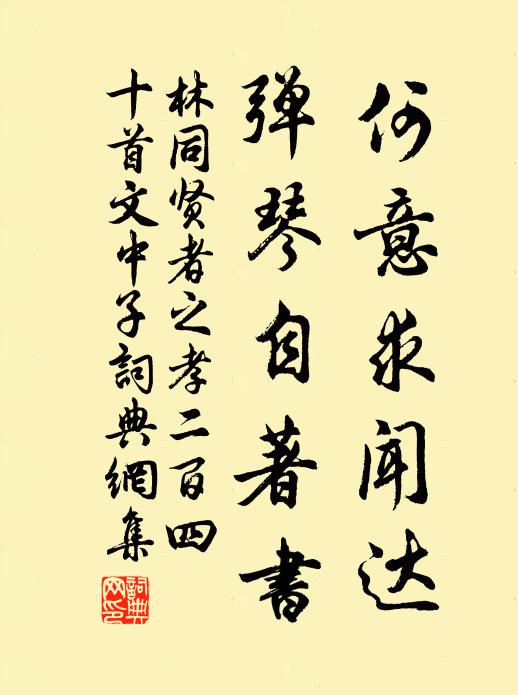 何意求闻达
弹琴自著书
林同贤者之孝二百四
十首文中子詞典網集
詞典
网印